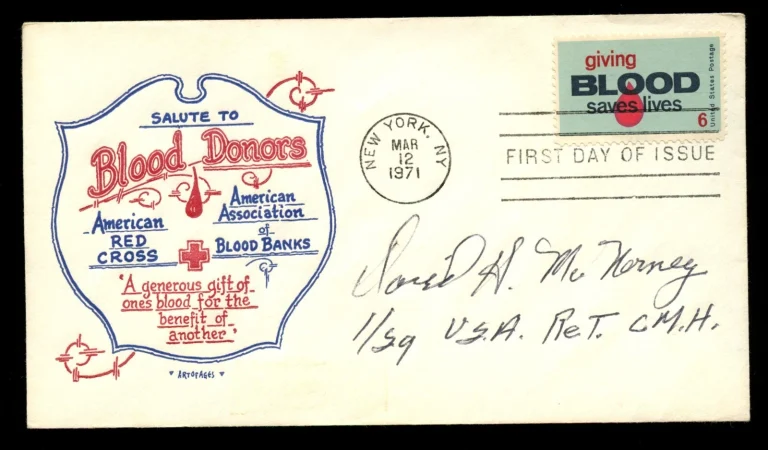 SALUTE TO
Blood Donors
American
RED
CROSS
American
Association
of
BLOOD BANKS
"A generous gift of
ones blood for the
benefit of
another"
ARTOFAGES
NEW YORK, NY
MAR
12
1971
giving
BLOOD
saves lives
6¢
United States Postage
FIRST DAY OF ISSUE
David H. McNerney
1/Sg U.S.A. RET. C.M.H.